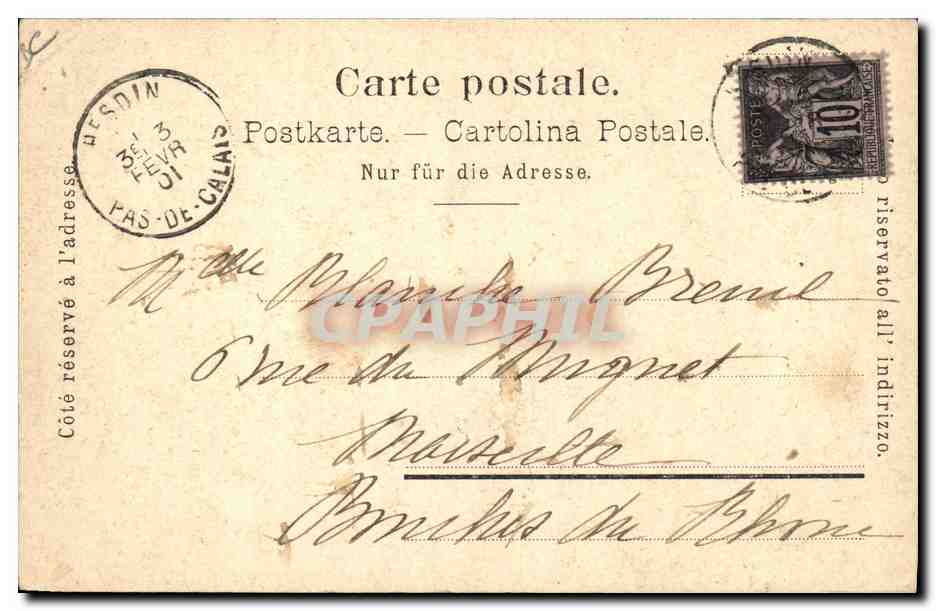 Carte postale.
Postkarte. — Cartolina Postale.
Nur für die Adresse.
HESDIN
3E
3
FEVR
01
PAS-DE-CALAIS
POSTES
10
REPUBLIQUE FRANÇAISE
Côté réservé à l'adresse.
riservato all' indirizzo.
Melle Blanche Breuil
6 rue du Mignet
Marseille
Bouches du Rhône
CPAPHIL